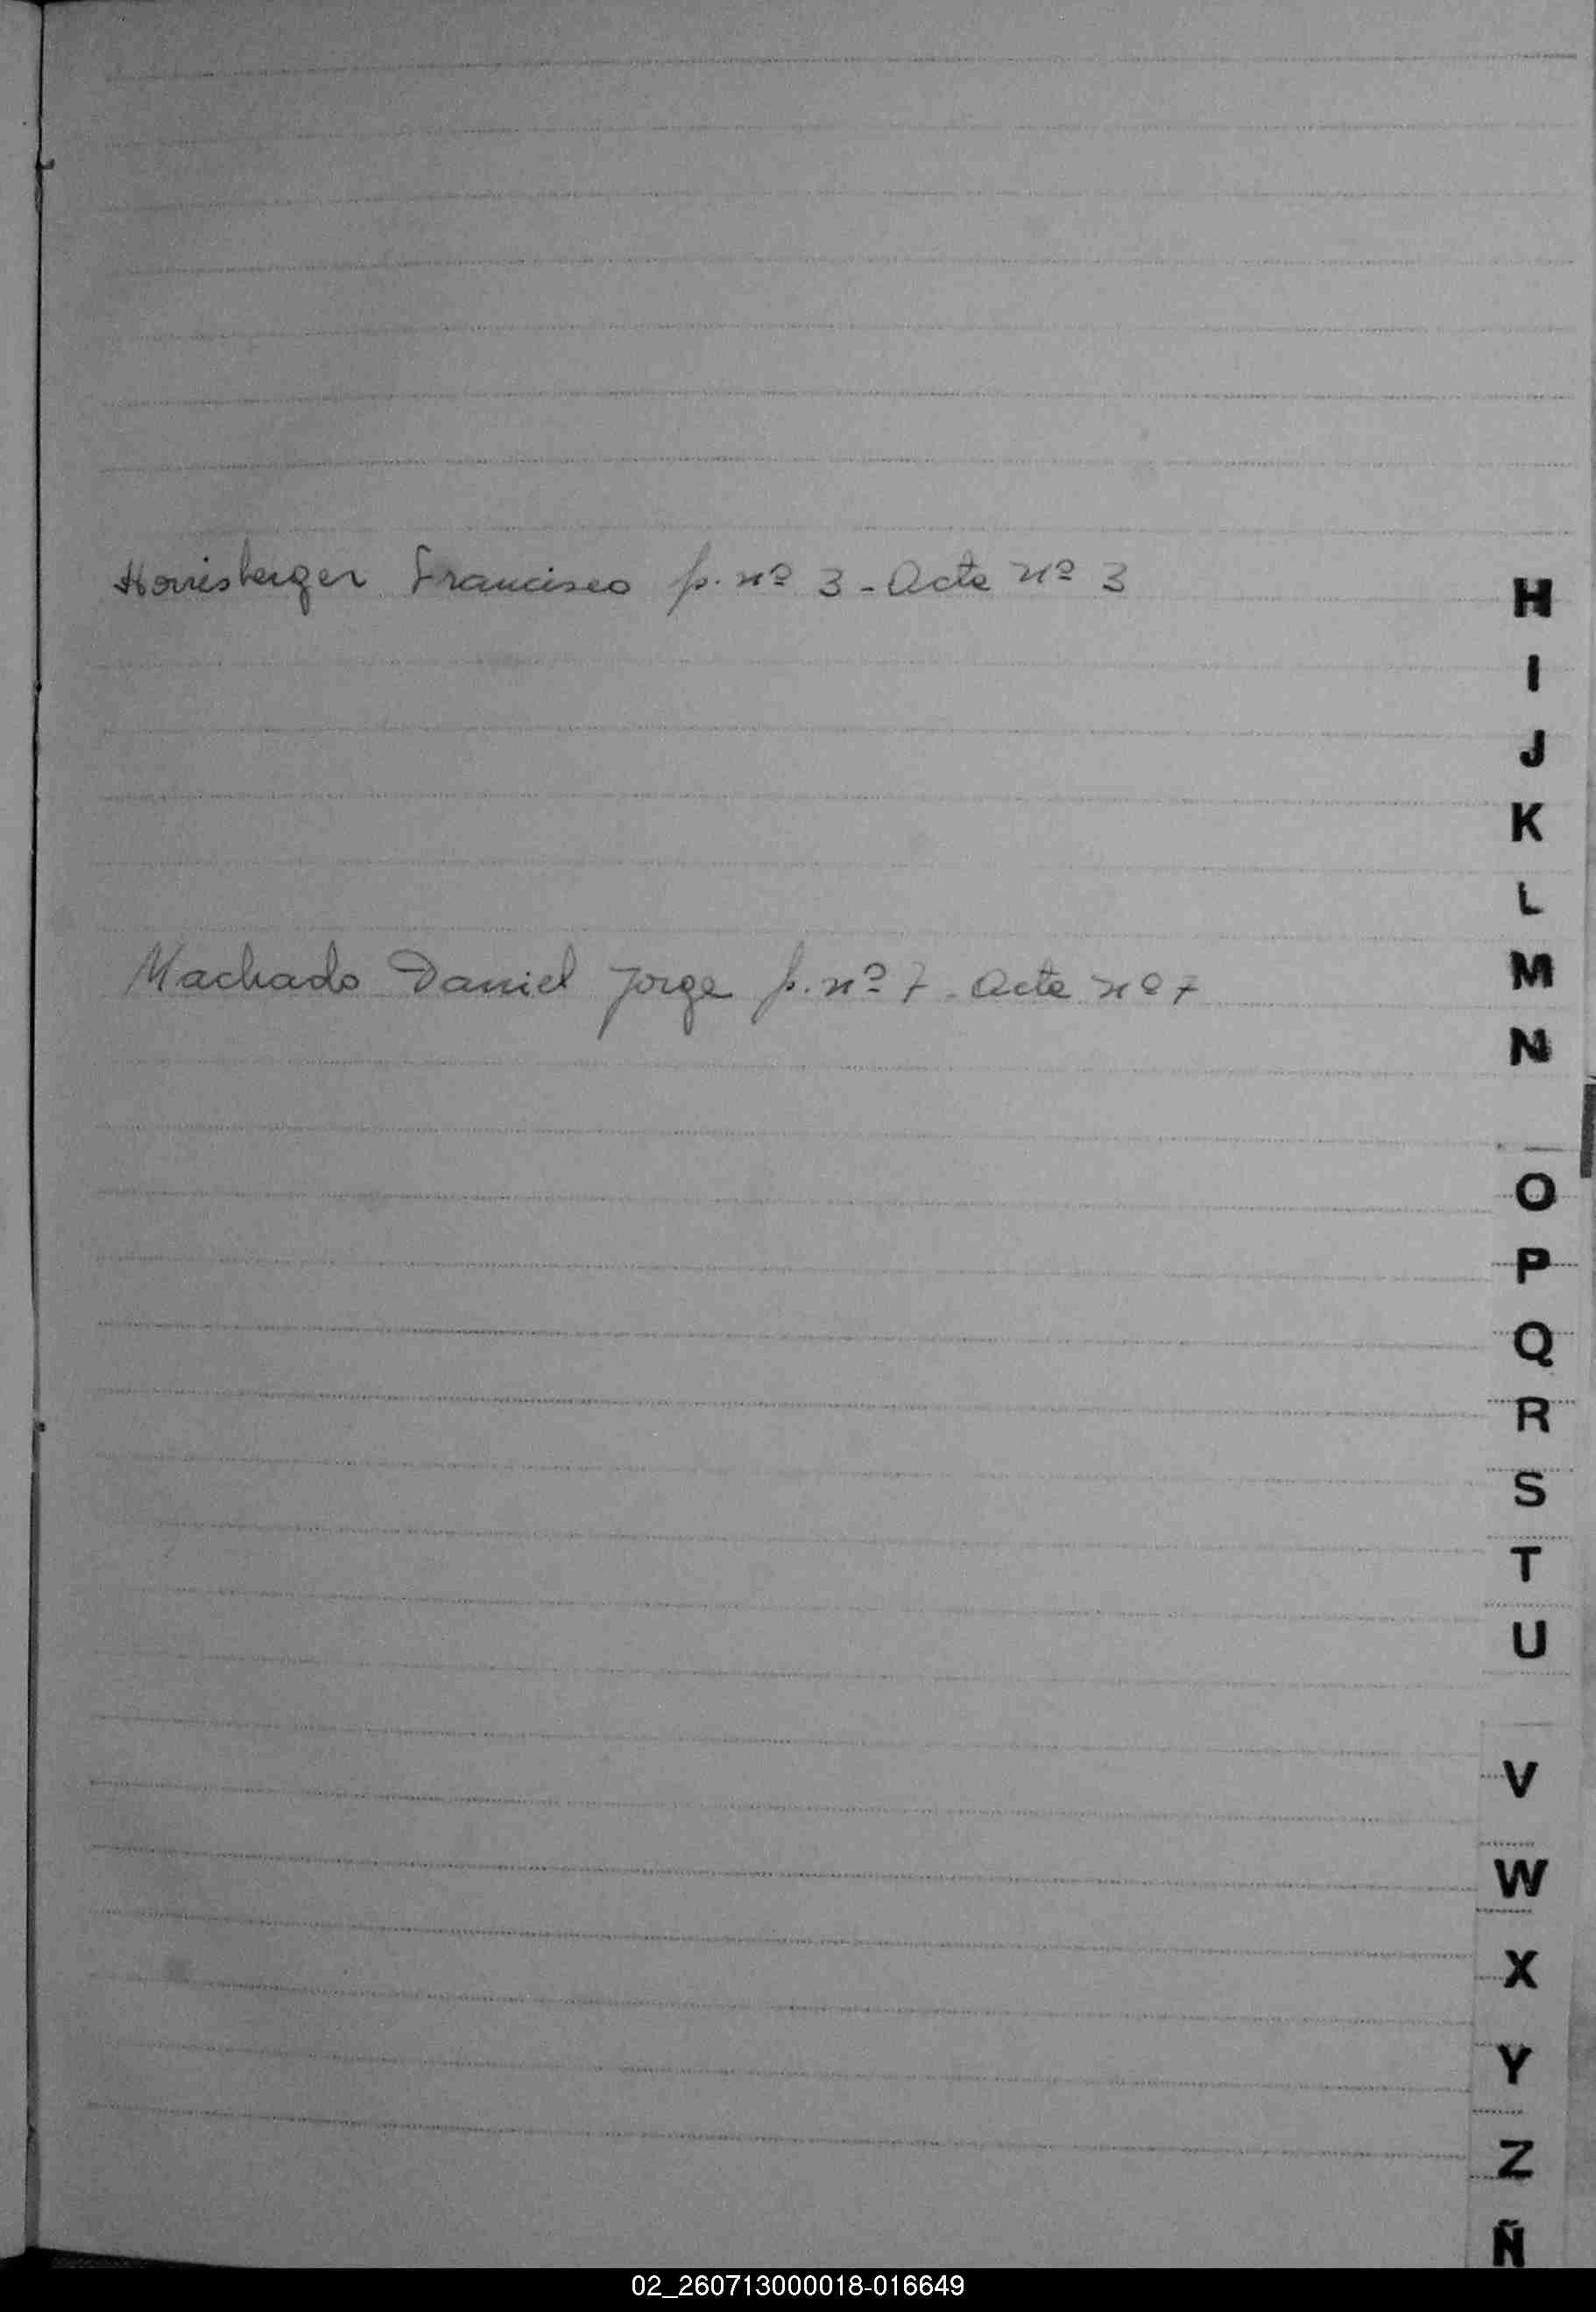 Horrisberger Francisco p. nº 3 - Acta nº 3
H
I
J
K
L
Machado Daniel Jorge p. nº 7 - Acta nº 7
M
N
O
P
Q
R
S
T
U
V
W
X
Y
Z
Ñ
02_260713000018-016649